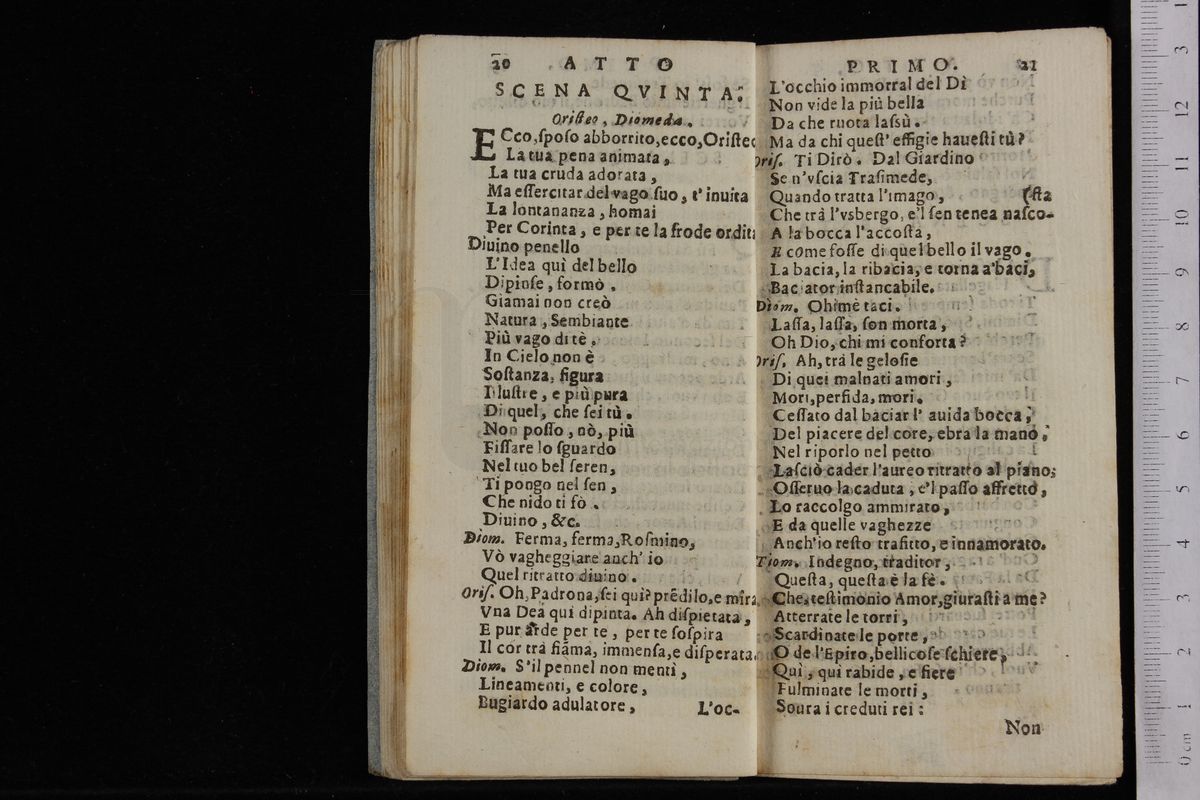 20 ATTO
SCENA QVINTA.
Oristeo, Diomeda.
ECco, ſpoſo abborrito, ecco, Oriſteo
La tua pena animata,
La tua cruda adorata,
Ma eſſercitar del vago ſuo, t' inuita
La lontananza, homai
Per Corinta, e per te la frode ordit
Diuino penello
L'Idea quì del bello
Dipinſe, formò.
Giamai non creò
Natura, Sembiante
Più vago di tè.
In Cielo non è
Soſtanza, figura
Illuſtre, e più pura
Di quel, che ſei tù.
Non poſſo, nò, più
Fiſſare lo ſguardo
Nel tuo bel ſeren,
Ti pongo nel ſen,
Che nido ti fò.
Diuino, &c.
Diom. Ferma, ferma, Roſmino,
Vò vagheggiare anch' io
Quel ritratto diuino.
Oriſ. Oh, Padrona, ſei qui? prẽdilo, e mira,
Vna Dea qui dipinta. Ah diſpietata,
E pur arde per te, per te ſoſpira
Il cor trà fiãma, immenſa, e diſperata.
Diom. S'il pennel non mentì,
Lineamenti, e colore,
Bugiardo adulatore,
L'oc-
PRIMO. 21
L'occhio immorral del Dì
Non vide la più bella
Da che ruota laſsù.
Ma da chi queſt' effigie haueſti tù?
Oriſ. Ti Dirò. Dal Giardino
Se n'vſcia Traſimede,
Quando tratta l'imago, (ſta
Che trà l'vsbergo, e'l ſen tenea naſco-
A la bocca l'accoſta,
E come foſſe di quel bello il vago.
La bacia, la ribacia, e torna a' baci,
Baciator inſtancabile.
Diom. Ohimè taci.
Laſſa, laſſa, ſon morta,
Oh Dio, chi mi conforta?
Oriſ. Ah, trà le geloſie
Di quei malnati amori,
Mori, perfida, mori.
Ceſſato dal baciar l' auida bocca,
Del piacere del core, ebra la mano,
Nel riporlo nel petto
Laſciò cader l'aureo ritratto al piano;
Oſſeruo la caduta, e'l paſſo affretto,
Lo raccolgo ammirato,
E da quelle vaghezze
Anch'io reſto trafitto, e innamorato.
Tiom. Indegno, traditor,
Queſta, queſta è la fè.
Che, teſtimonio Amor, giuraſti a me?
Atterrate le torri,
Scardinate le porte,
O de l'Epiro, bellicoſe ſchiere,
Quì, qui rabide, e fiere
Fulminate le morti,
Soura i creduti rei:
Non